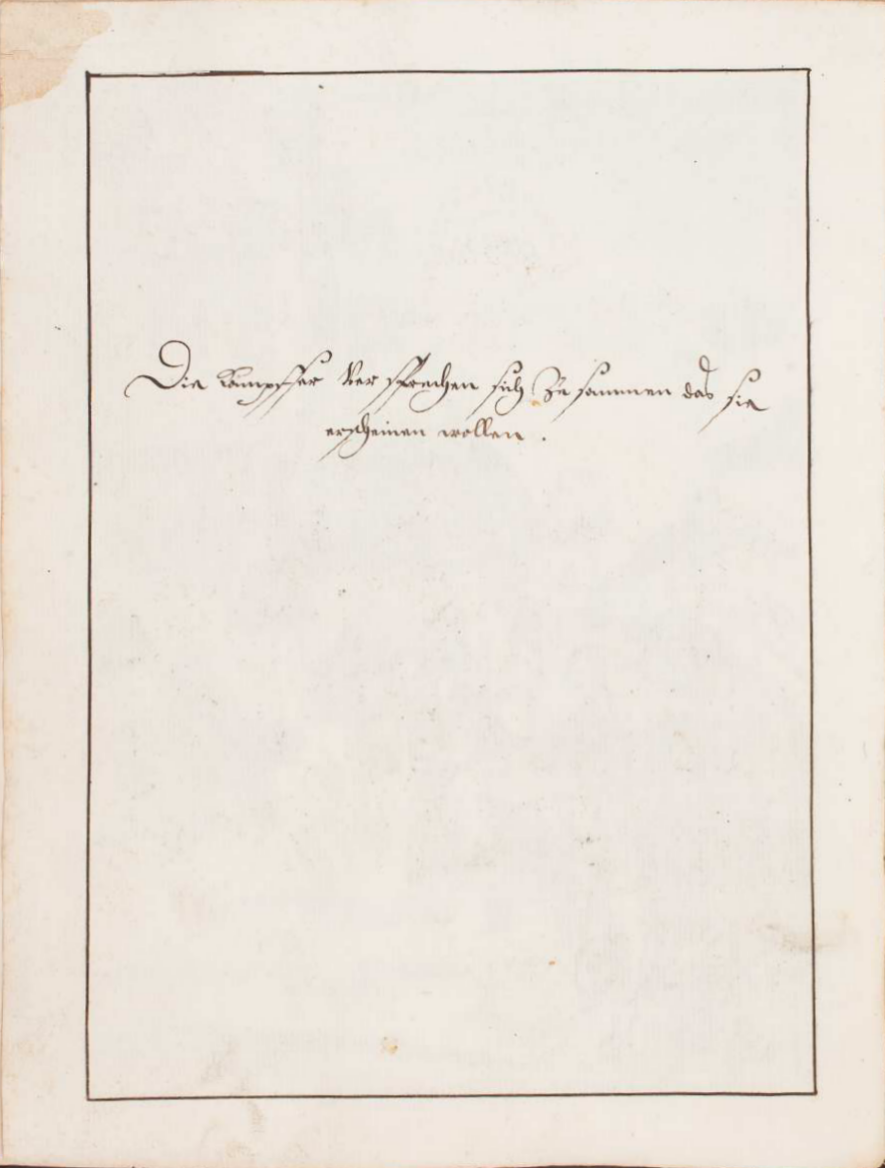 Die kampffer Ver sprechen sich Zu sammen das sie
erscheinen wollen .